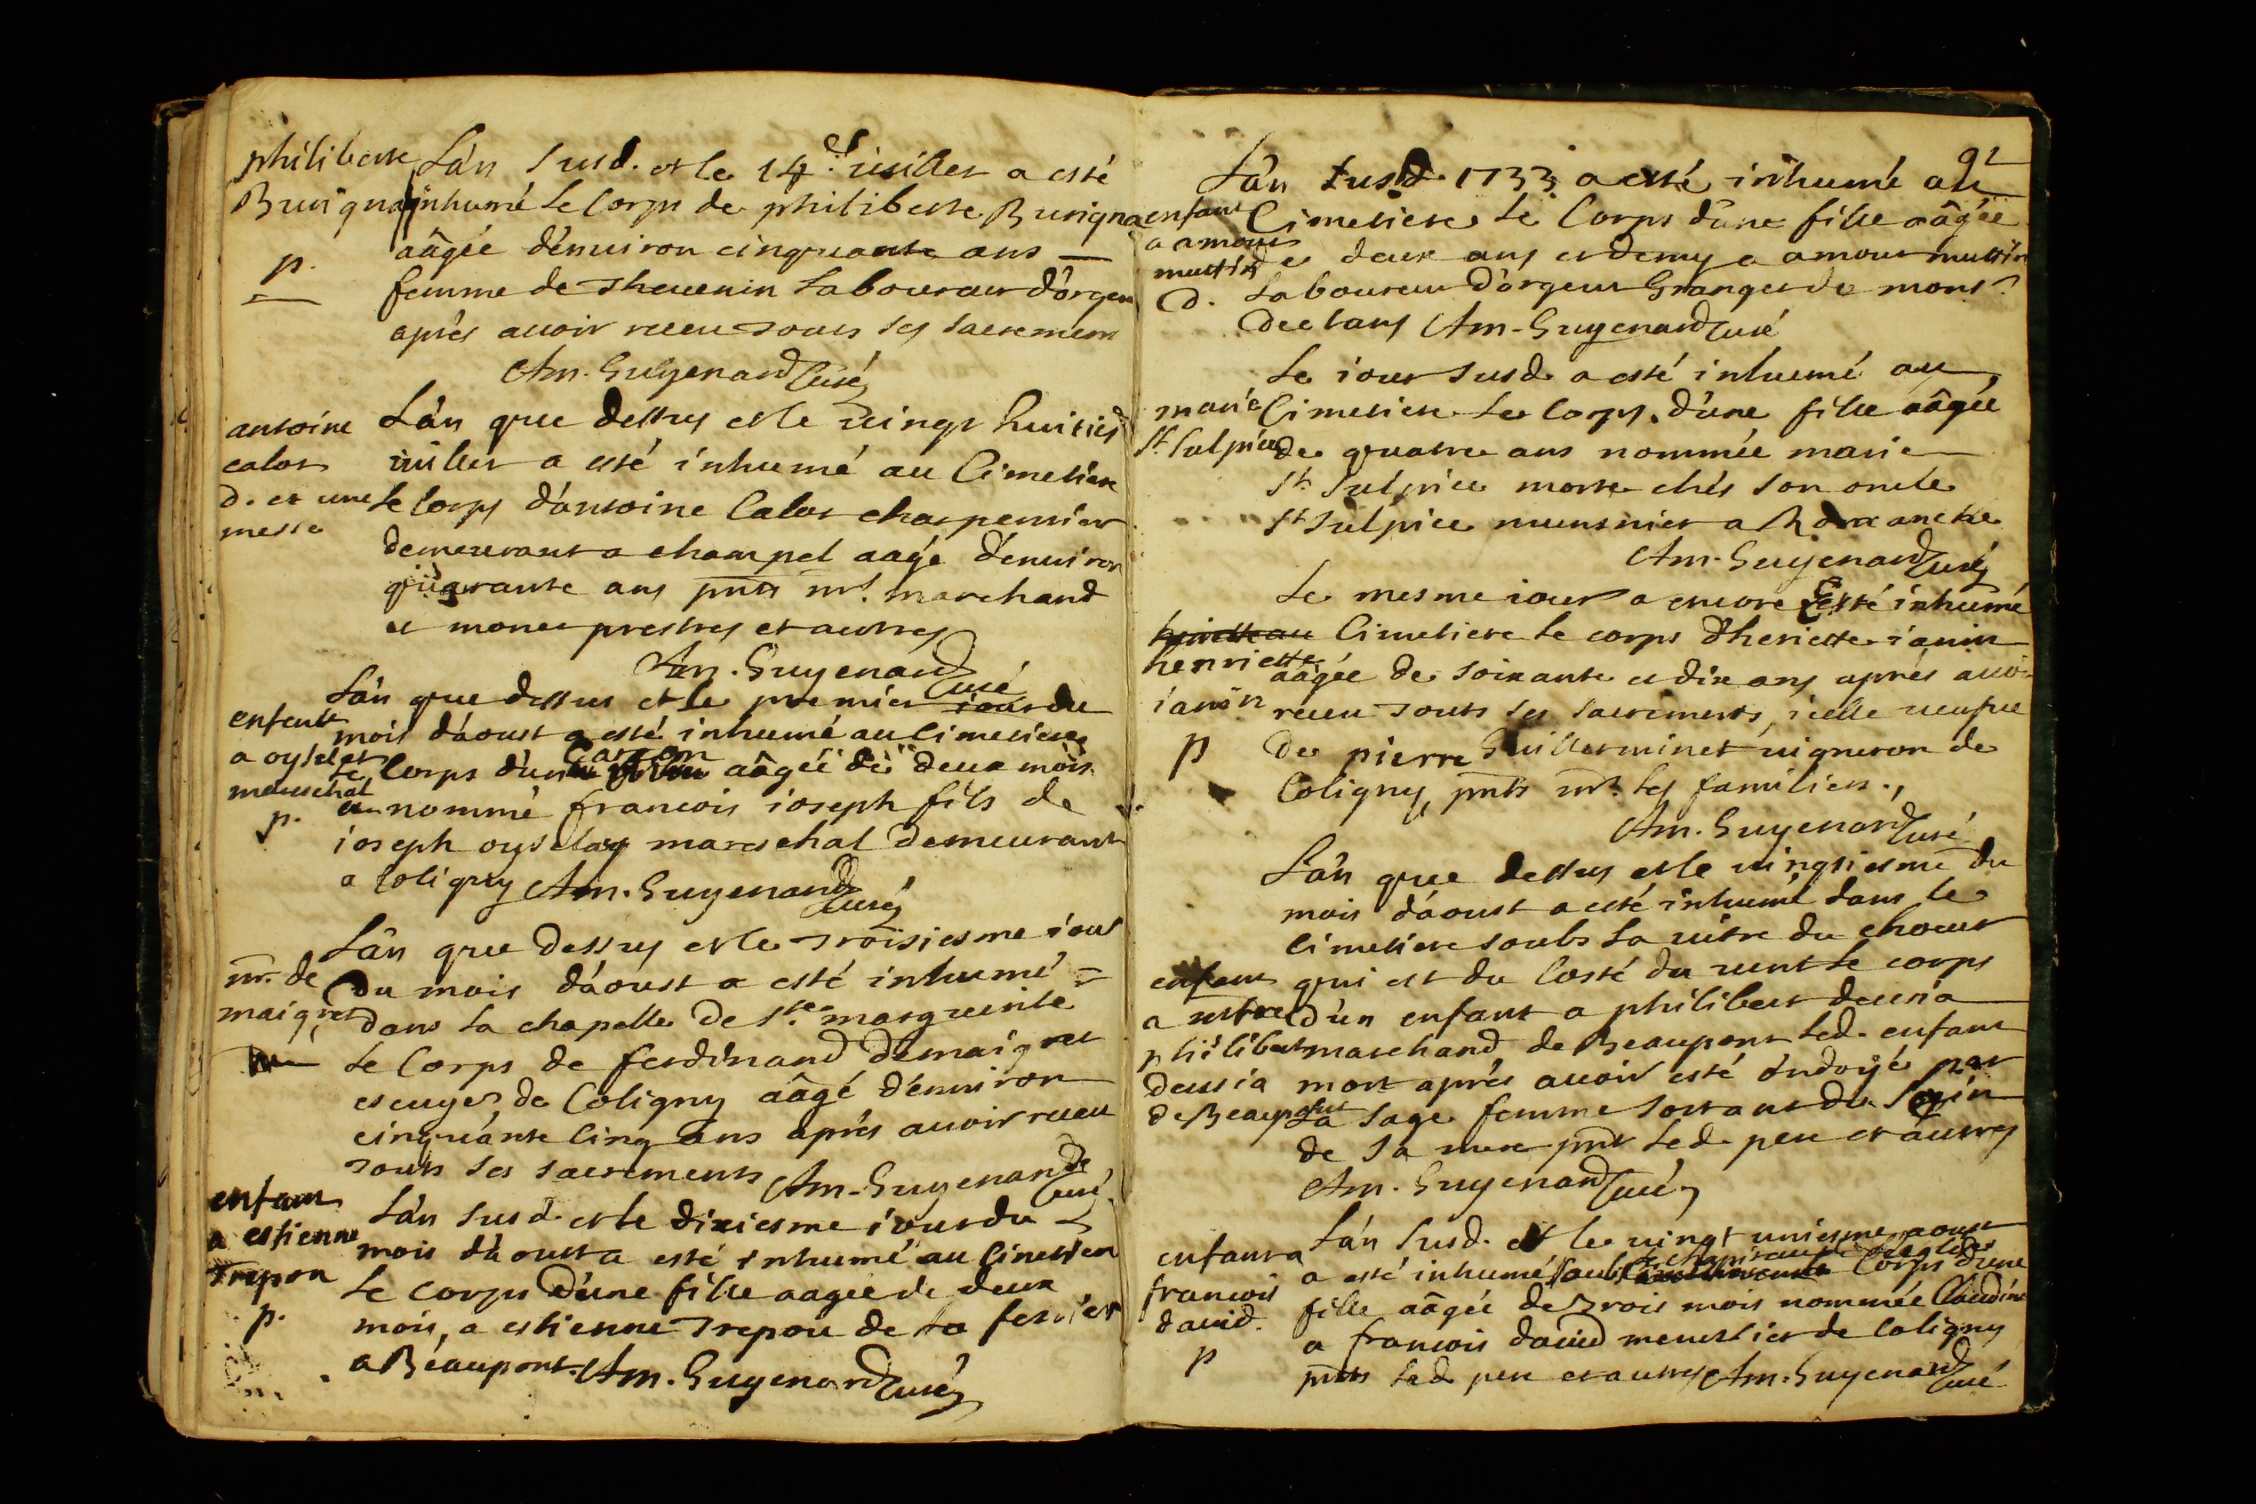 philiberte
Buuigna
p.
L'an susd. et le 14e iuillet a esté
inhumé le corps de philiberte Buuigna
aâgée d'enuiron cinquante ans —
femme de Theuenin laboureur d'orgeu
aprés auoir receu touts les sacrements
Am. Guyenard Curé
antoine
calot
d. et une
messe
L'an que dessus et le vingt huitiè
iuillet a esté inhumé au Cimetiere
le corps d'antoine Calot charpentier
demeurant a champel aagé d'enuiron
quarante ans pnts mr. marchand
et monet prestres et autres
Am. Guyenard Curé
enfant
a oyselet
mareschal
p.
L'an que dessus et le premier iour du
mois d'aoust a esté inhumé au Cimetiere
le Corps d'un Garçon aâgé de deux mois
nommé francois ioseph fils de
ioseph oyselay mareschal demeurant
a Coligny Am. Guyenard Curé
mr. de
maigret
L'an que dessus et le troisiesme iour
du mois d'aoust a esté inhumé =
dans la chapelle de ste. marguerite
le Corps de ferdinand demaigret
escuyer de Coligny aâgé d'enuiron
cinquante cinq ans aprés auoir receu
touts les sacrements Am. Guyenard Curé
enfant
a estienne
Trepou
p.
L'an susd. et le dixiesme iour du
mois d'aoust a esté inhumé au Cimetiere
le corps d'une fille aagée de deux
mois, a estienne Trepou de la
a Beaupont. Am. Guyenard Curé
92
enfant
a amour
muttin
d.
L'an susd. 1733 a esté inhumé au
Cimetiere le Corps d'une fille aâgée
de deux ans et demy a amour muttin
laboureur d'orgeu Granger de monsr.
declans Am. Guyenard Curé
marie
st. sulpice
Le iour susd. a esté inhumé au
Cimetiere le Corps d'une fille aâgée
de quatre ans nommée marie
st. sulpice morte chés son oncle
st sulpice munsnier a
Am. Guyenard Curé
henriette
ianin
p
Le mesme iour a encore esté inhumé
au Cimetiere le corps d'heriette ianin
aâgée de soixante et dix ans aprés auoir
receu touts les sacrements, icelle ueufue
de pierre Guillerminet uigneron de
Coligny, pnts mrs. les familiers.,
Am. Guyenard Curé
enfant
a
philibert
deuria
de Beaupont
L'an que dessus et le uingtiesme du
mois d'aoust a esté inhumé dans le
Cimetiere soubs la uitre du choeur
qui est du Costé du uent le corps
d'un enfant a philibert deuria
marchand de Beaupont led. enfant
mort aprés auoir esté ondoyé par
la sage femme sortant du sein
de sa mere pnt led. peu et autres
Am. Guyenard Curé
enfant a
francois
dauid.
p
L'an susd. et le uingt uniesme aoust
a esté inhumé soubs le chapiteau de l'eglise le Corps d'une
fille aâgée de trois mois nommée Claudine
a francois dauid menusier de Coligny
pnts led peu et autres Am. Guyenard Curé